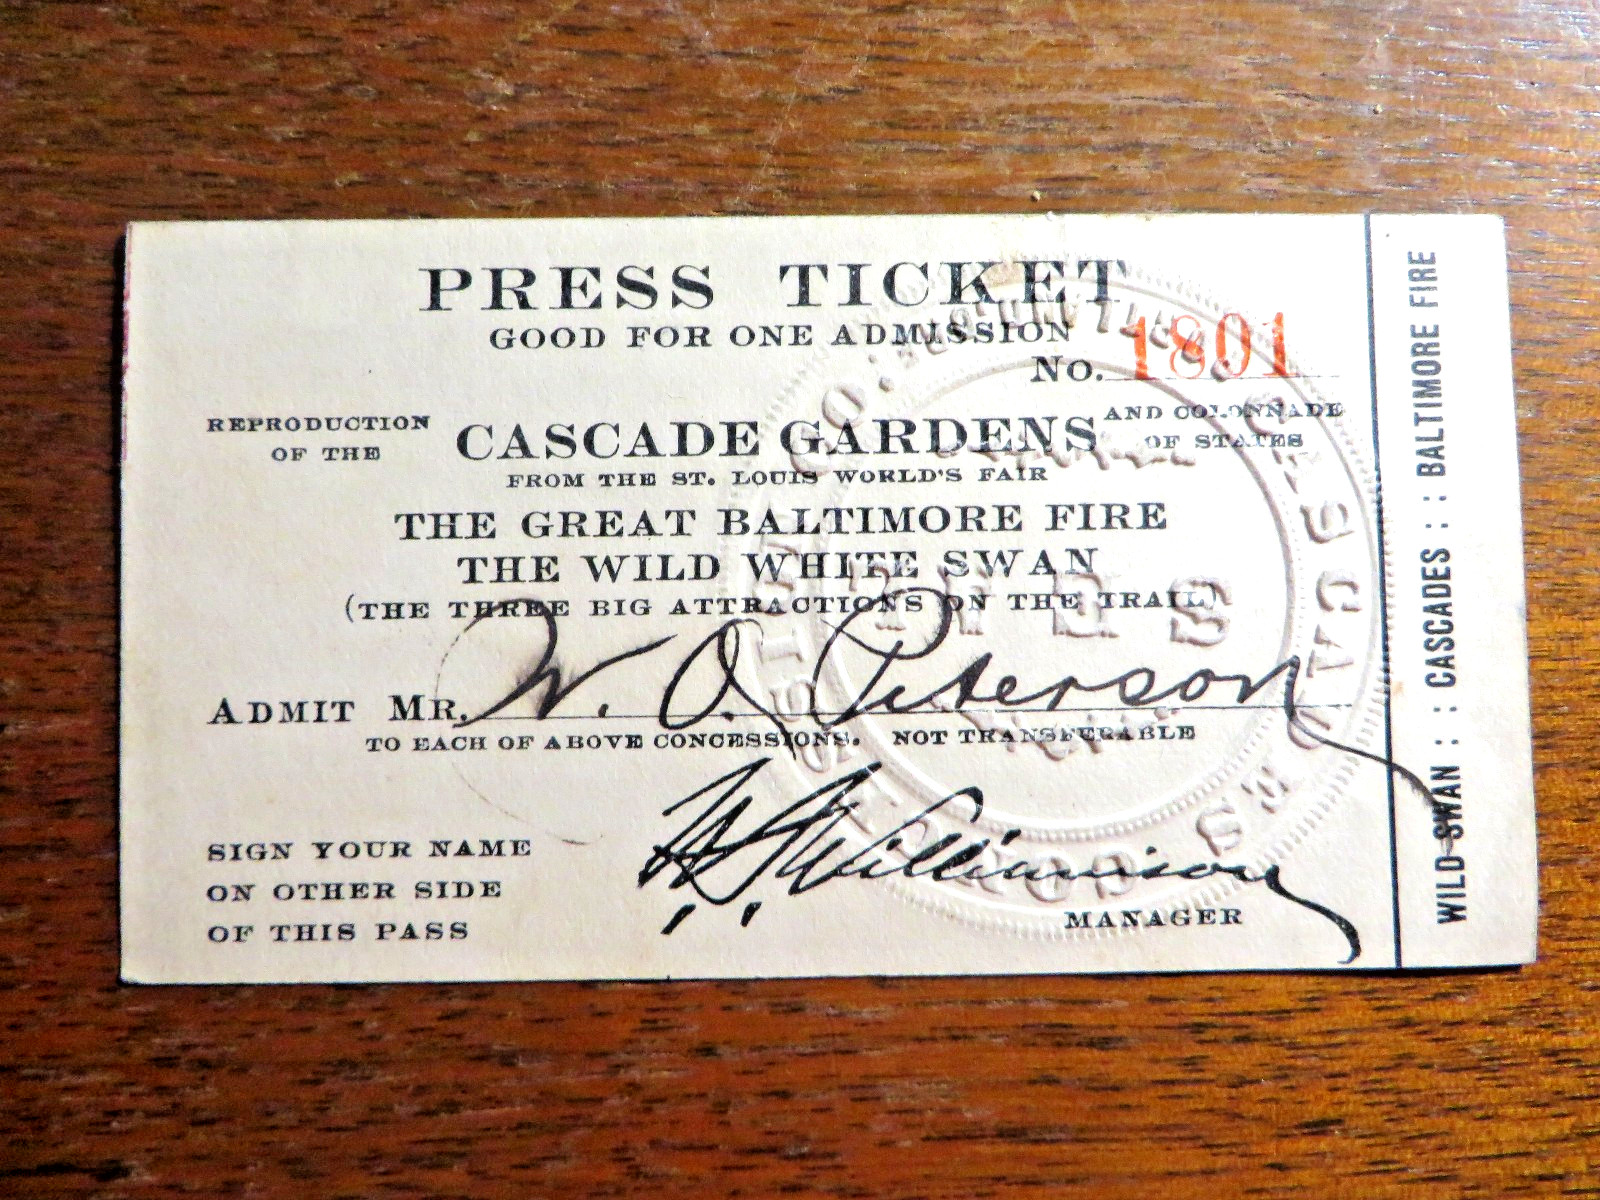 PRESS TICKET
GOOD FOR ONE ADMISSION
No. 1801
REPRODUCTION OF THE CASCADE GARDENS AND COLONNADE OF STATES
FROM THE ST. LOUIS WORLD'S FAIR
THE GREAT BALTIMORE FIRE
THE WILD WHITE SWAN
(THE THREE BIG ATTRACTIONS ON THE TRAIL)
ADMIT MR. W. O. Peterson
TO EACH OF ABOVE CONCESSIONS. NOT TRANSFERABLE
SIGN YOUR NAME
ON OTHER SIDE
OF THIS PASS
Williamson
MANAGER
WILD SWAN : : CASCADES : : BALTIMORE FIRE